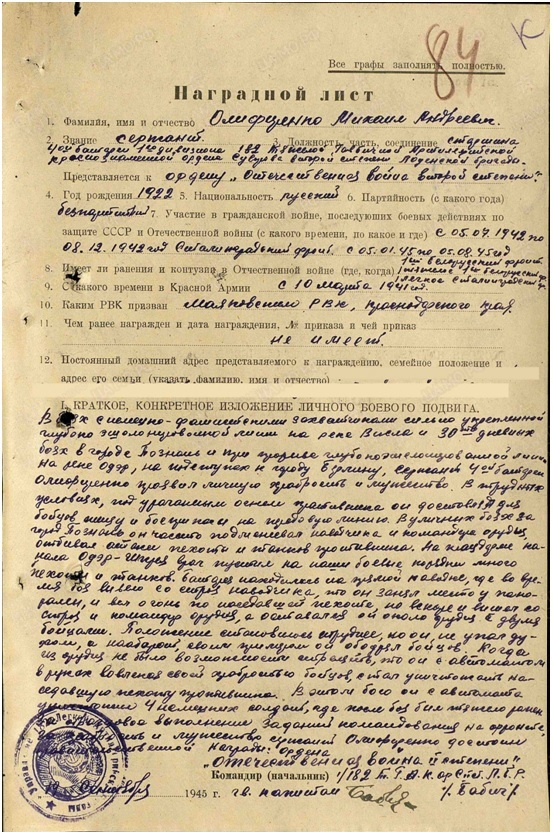 84 К
Все графы заполнять полностью.
Наградной лист
1. Фамилия, имя и отчество Олифиренко Михаил Андреевич
2. Звание сержант 3. Должность, часть, соединение старшина
4ой батареи 1го дивизиона 182
краснознаменной ордена Суворова второй степени Лодзинской бригады.
Представляется к ордену „Отечественная война второй степени".
4. Год рождения 1922 5. Национальность русский 6. Партийность (с какого года)
беспартийный 7. Участие в гражданской войне, последующих боевых действиях по
защите СССР и Отечественной войны (с какого времени, по какое и где) с 05.07.1942 по
08.12.1942 год Сталинградский фронт. с 05.01.45 по 05.08.45 год
1ый белорусский фронт.
8. Имеет ли ранения и контузии в Отечественной войне (где, когда) 1 тяжелое 1ый белорусский фр.
1 легкое Сталинградский
9. С какого времени в Красной Армии с 10 марта 1941 г.
10. Каким РВК призван Маяковского РВК, Краснодарского края.
11. Чем ранее награжден и дата награждения, № приказа и чей приказ
не имеет.
12. Постоянный домашний адрес представляемого к награждению, семейное положение и
адрес его семьи (указать фамилию, имя и отчество)
I. КРАТКОЕ, КОНКРЕТНОЕ ИЗЛОЖЕНИЕ ЛИЧНОГО БОЕВОГО ПОДВИГА.
В боях с немецко-фашистскими захватчиками сильно укрепленной
глубоко эшелонированной линии на реке Висла и 30ти дневных
боях в городе Познань и при прорыве глубокоэшелонированной линии
на реке Одэр, на подступах к городу Берлину, сержант 4ой батареи
Олифиренко проявил личную храбрость и мужество. В трудных
условиях, под ураганным огнем противника он доставлял для
бойцов пищу и боеприпасы на передовую линию. В уличных боях за
город Познань он часто подменевал наводчика и командира орудия,
отбивая атаки пехоты и танков противника. На плацдарме
канала Одэр-Шпрее враг пустил на наши боевые порядки много
пехоты и танков. Батарея находилась на прямой наводке, где во вре-
мя боя вывело со строя наводчика, то он занял место у пано-
рамы, и вел огонь по наседавшей пехоте, но вскоре и вышел со
строя и командир орудия, а оставался он около орудия с двумя
бойцами. Положение становилось труднее, но он не упал ду-
хом, а наоборот своим примером он ободрял бойцов. Когда
из орудия не было возможности стрелять, то он с автоматом
в руках вовлекая своей храбростью бойцов, стал уничтожать на-
седавшую пехоту противника. В этом бою он с автомата
уничтожил 4 немецких солдат, где после был тяжело ранен
выполнение задания командования на фронте
и мужество сержант Олифиренко достоин
Награды: Ордена
„Отечественная война II степени"
Командир (начальник) 182
сентября 1945 г. гв. капитан Бабич
/Бабич/